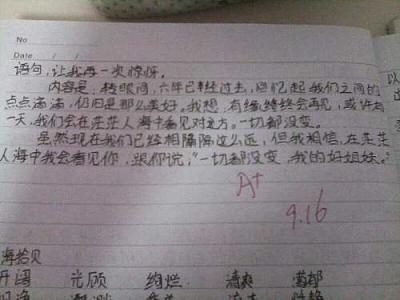 No
Date / /
语句，让我再一次惊呀。
内容是，转眼间，六年已经过去，回忆起我们之间的
点点滴滴，仍旧是那么美好。我想，有缘终会再见，或许有
一天，我们会在茫茫人海中看见对方。一切都没变。
虽然现在我们已经相隔隔这么远，但我相信，在茫茫
人海中我会看见你，跟你说，“一切都没变，我的好姐妹。”
A+
9.16
以
海拾贝
开阔 光顾 绚烂 清爽